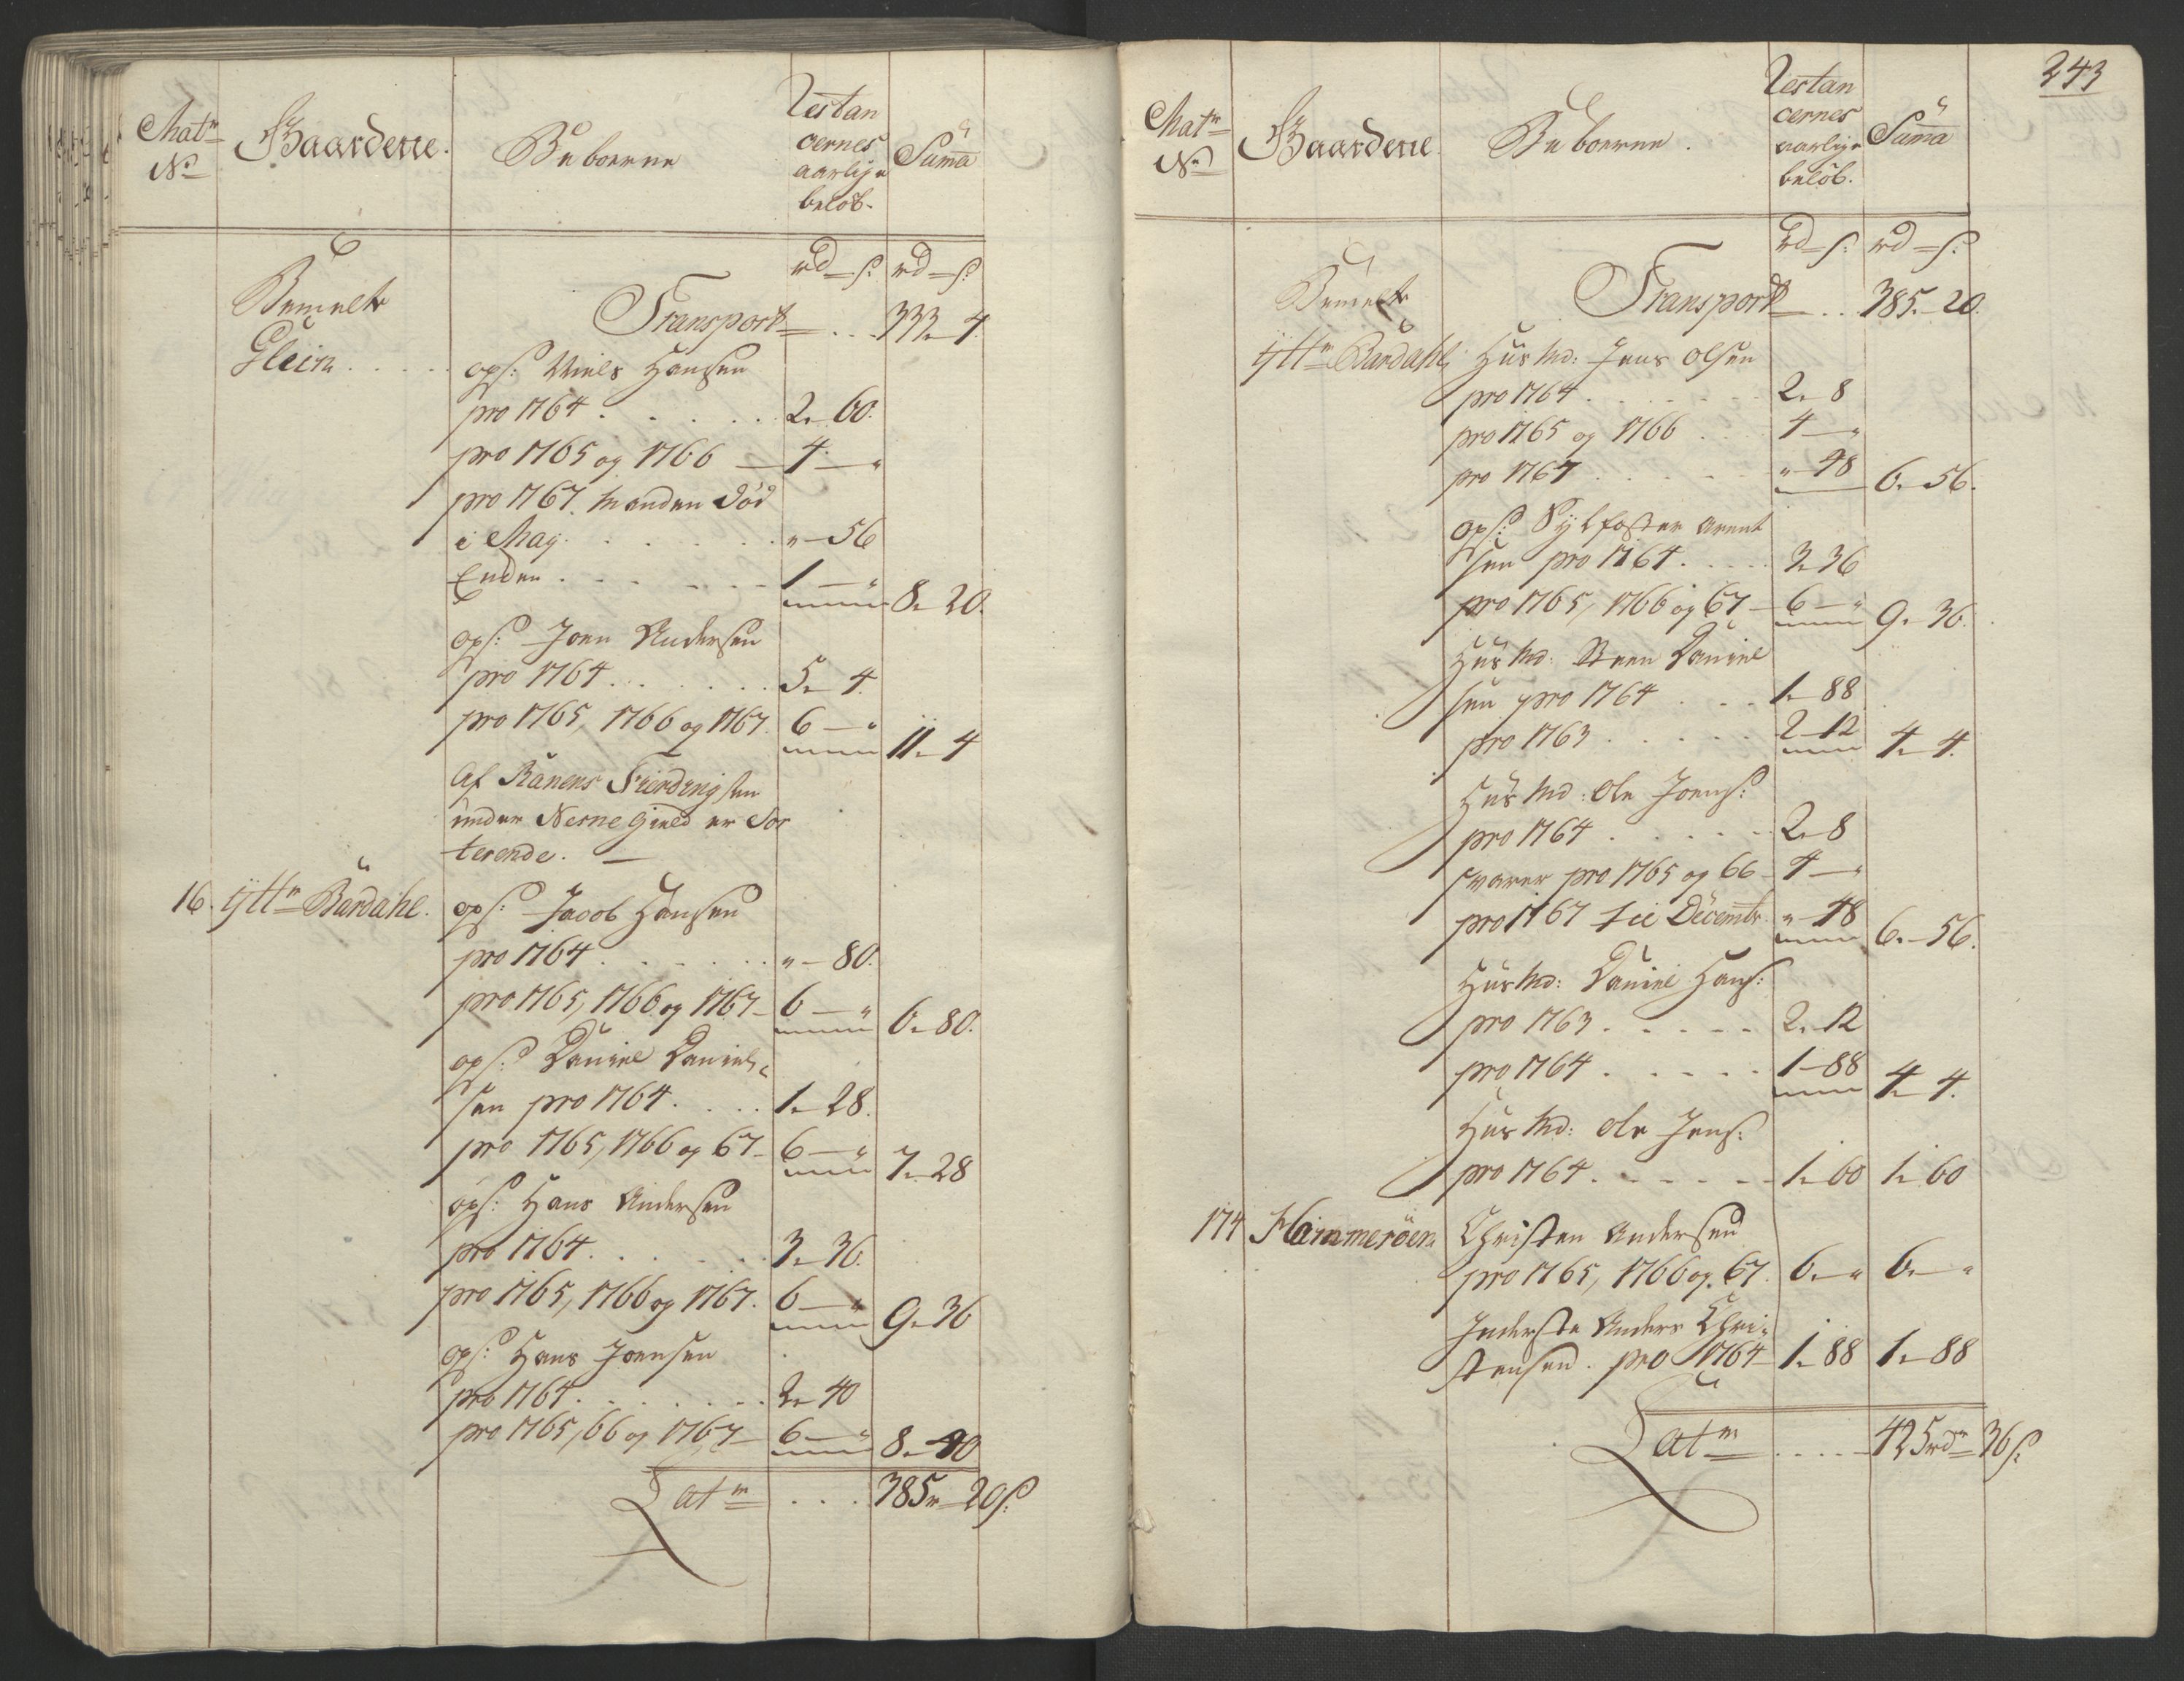 Matr
No
Gaardene.
Beboerne
Restan
cernes
aarlige
beløb.
Suma
rd - s: rd - s:
Bemelte
Transport - . . 333 - 4.
Glein . . . .
ops: Niels Hansen
pro 1764 . . . . . 2 - 60.
pro 1765 og 1766 - 4 - "
pro 1767. Manden død
i May . . . . . . " - 56
Enden . . . . . . 1 - " 8 - 20.
ops: Joen Andersen
pro 1764 . . . . . 5 - 4.
pro 1765, 1766 og 1767. 6 - " 11 - 4
Af Ranens Fierding som
under Nesne Gield er Sor
terende. -
16. Ÿttr Bardahl. ops: Jacob Hansen
pro 1764 . . . . . " - 80.
pro 1765, 1766 og 1767 - 6 - " 6 - 80.
ops: Daniel Daniel-
sen pro 1764 . . . . 1 - 28.
pro 1765, 1766 og 67 - 6 - " 7 - 28
ops: Hans Andersen
pro 1764 . . . . . 3 - 36.
pro 1765, 1766 og 1767. 6 - " 9 - 36
ops: Hans Joensen
pro 1764 . . . . . . 2 - 40
pro 1765, 66 og 1767 - 6 - " 8 - 40
Latr . . . 385 r - 20 s:
343
Matr
No
Gaardene
Beboerne.
Restan
cernes
aarlige
beløb.
Suma
rd - s: rd - s:
Bemelte
Transport - . . 385 - 20.
Ÿttr Bardahl Huusmd: Jens Olsen
pro 1764 . . . . . . 2 - 8
pro 1765 og 1766 . . 4 - "
pro 1767 . . . . . " - 48 6 - 56.
ops: Sylfester Arent
sen pro 1764 . . . . 3 - 36
pro 1765, 1766 og 67 - 6 - " 9 - 36.
Huusmd: Steen Daniel
sen pro 1764 . . . 1 - 88
pro 1763 . . . . . 2 - 12 4 - 4.
Huusmd: Ole Joens:
pro 1764 . . . . . 2 - 8
svarer pro 1765 og 66 - 4 - "
pro 1767 til Decembr. " - 48 6 - 56.
Huusmd: Daniel Hans:
pro 1763 . . . . . 2 - 12
pro 1764 . . . . . 1 - 88 4 - 4.
Huusmd: Ole Jens:
pro 1764 . . . . . . 1 - 60 1 - 60
174 Hammerøen Christen Andersen
pro 1765, 1766 og 67. 6 - " 6 - "
Inderste Anders Chri-
stensen. pro 1764 - 1 - 88 1 - 88
Latr . . . . 425 rdr 36 s: